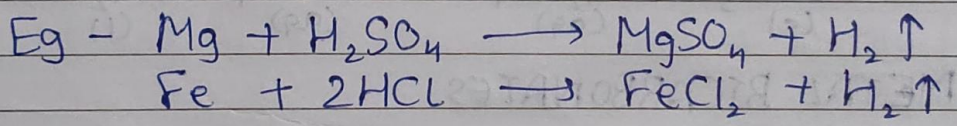 Eg - Mg + H₂SO₄ → MgSO₄ + H₂ ↑
Fe + 2HCl → FeCl₂ + H₂ ↑